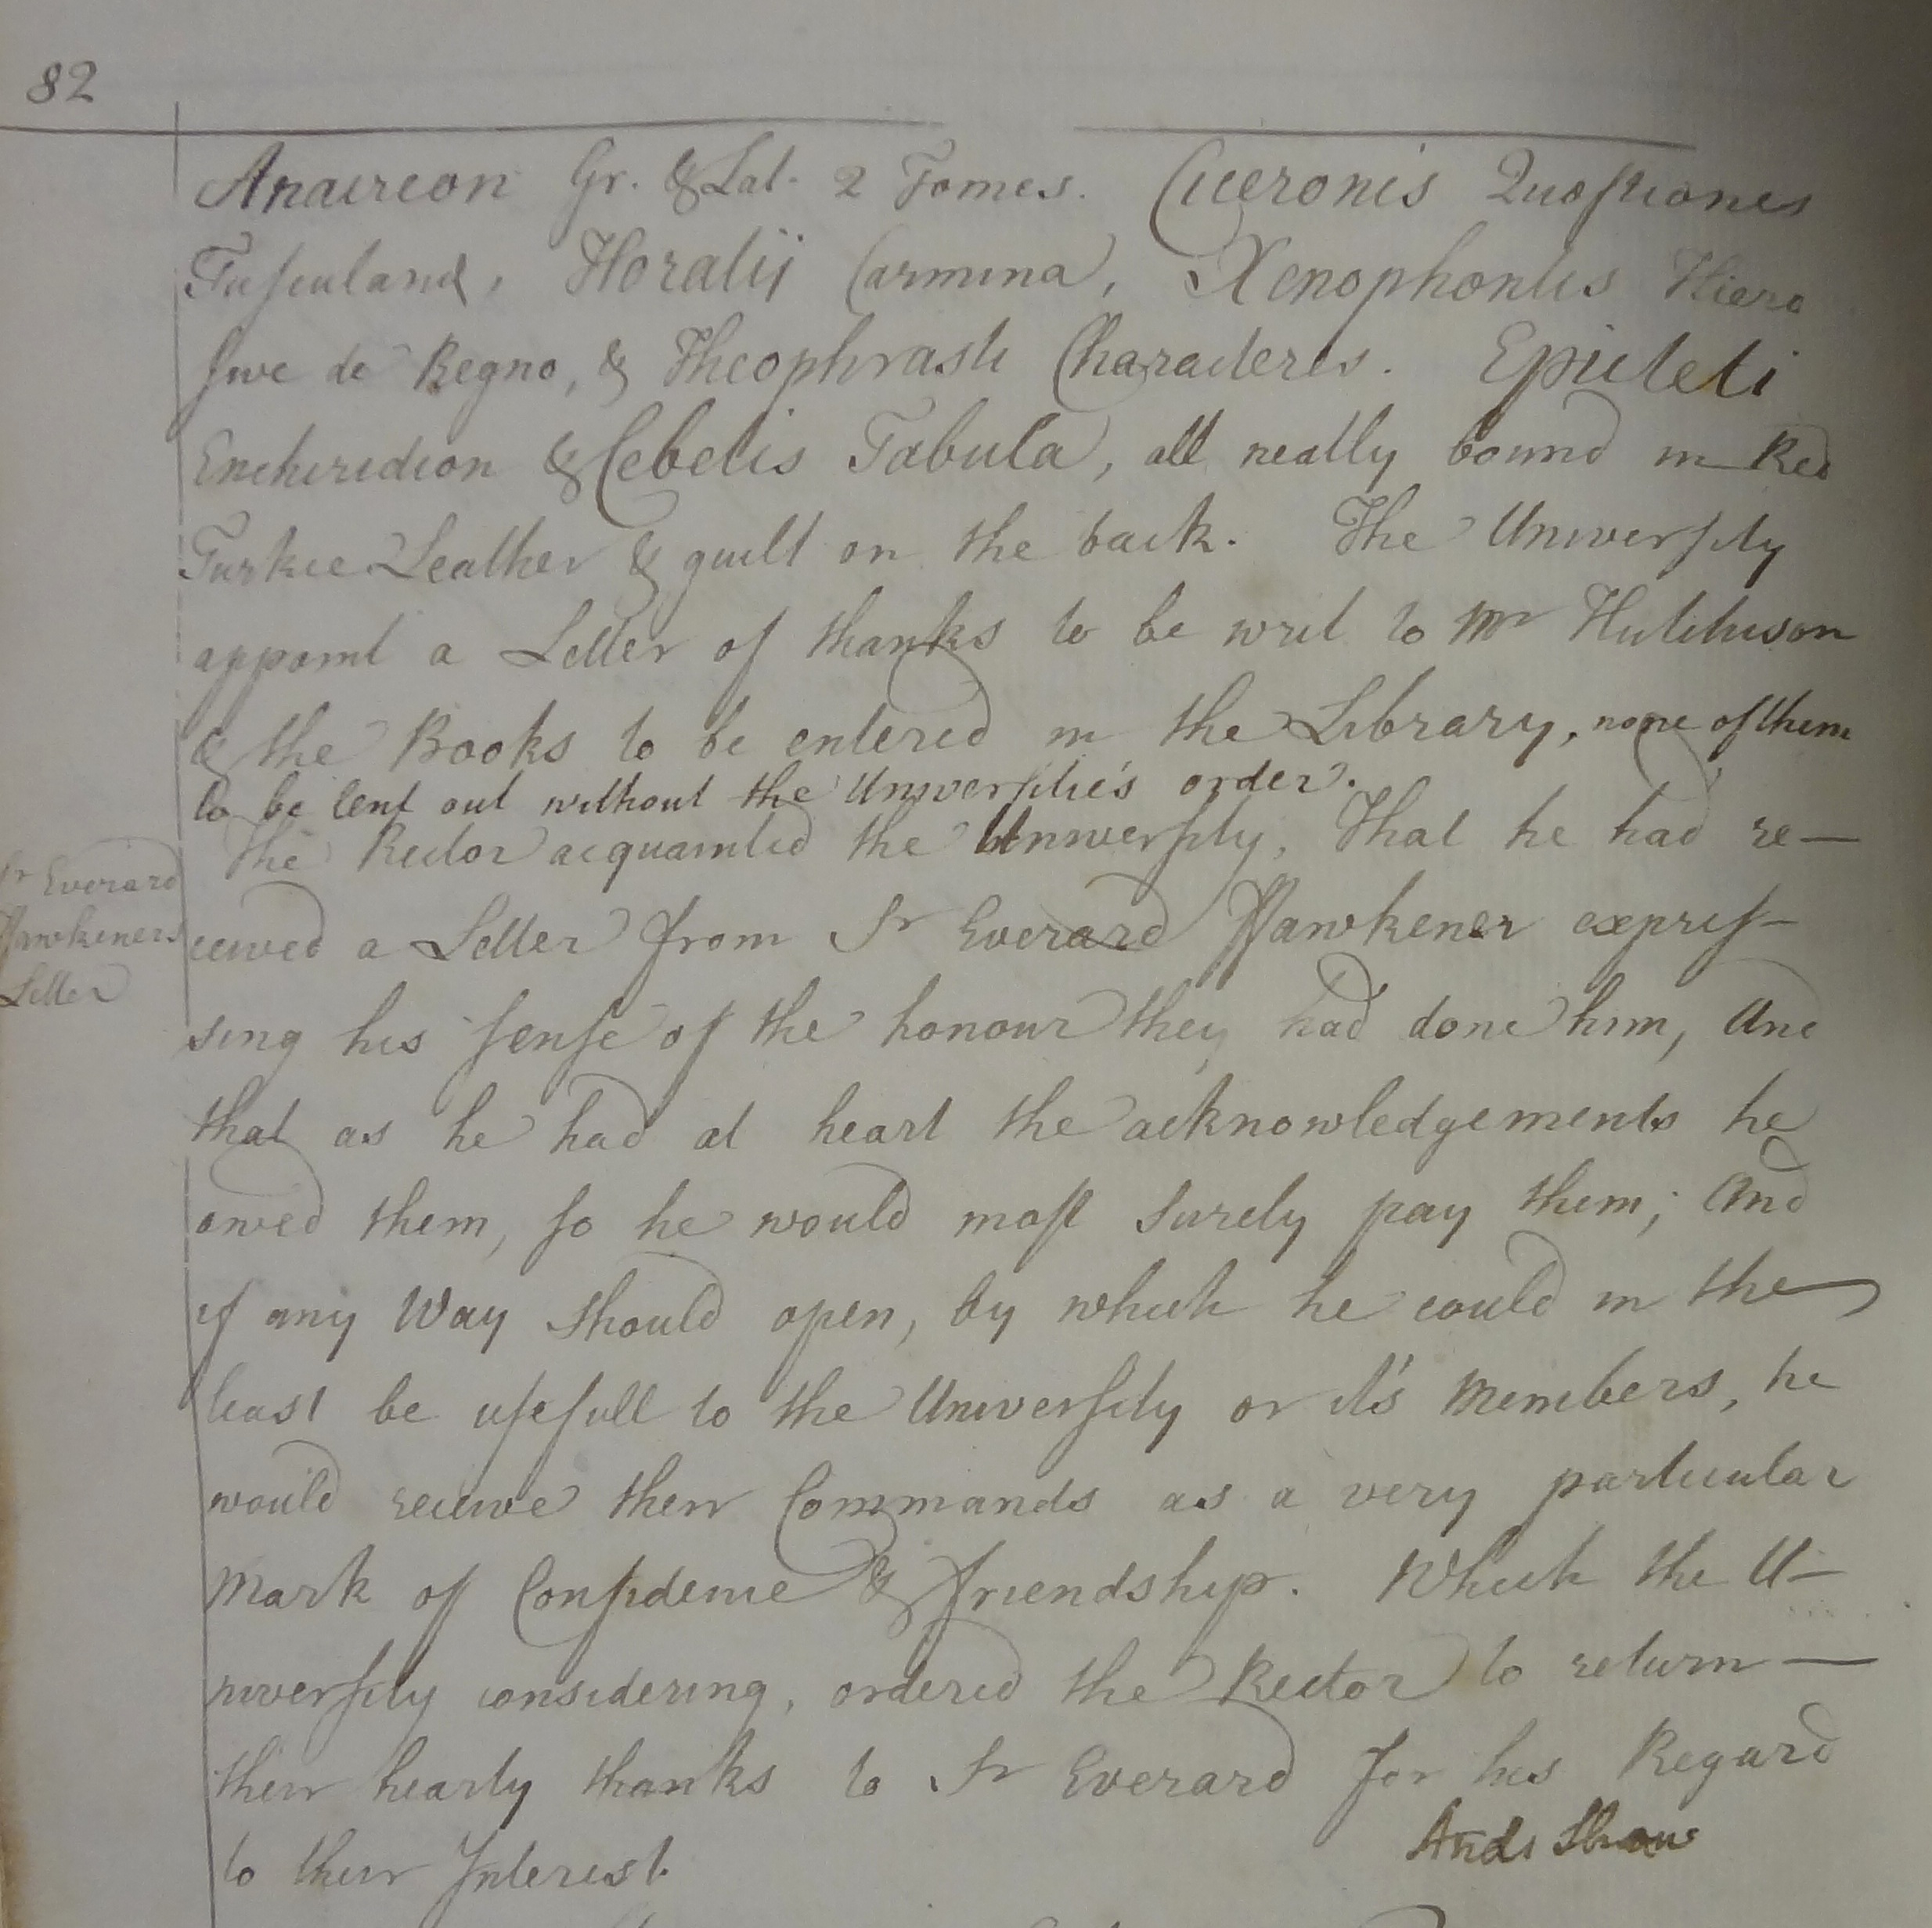 82
Anacreon Gr. & Lat. 2 Tomes. Ciceronis Quæstiones
Tusculanæ, Horatij Carmina, Xenophontis Hiero
sive de Regno, & Theophrasti Characteres. Epicteti
Enchiridion & Cebetis Tabula, all neatly bound in Red
Turkie Leather & guilt on the back. The University
appoint a Letter of thanks to be writ to Mr Hutchison
& the Books to be entered in the Library, none of them
to be lent out without the Universitie's order.
The Rector acquainted the University, That he had re—
Sr Everard
Fawkeners
Letter
ceived a Letter from Sr Everard Ffawkener expres-
sing his sense of the honour they had done him, And
that as he had at heart the acknowledgements he
owed them, so he would most surely pay them; And
if any Way should open, by which he could in the
least be usefull to the University or it's Members, he
would receive their Commands as a very particular
Mark of Confidence & friendship. Which the U-
niversity considering, ordered the Rector to return—
their hearty thanks to Sr Everard for his Regard
to their Interest.
Andr Shaw